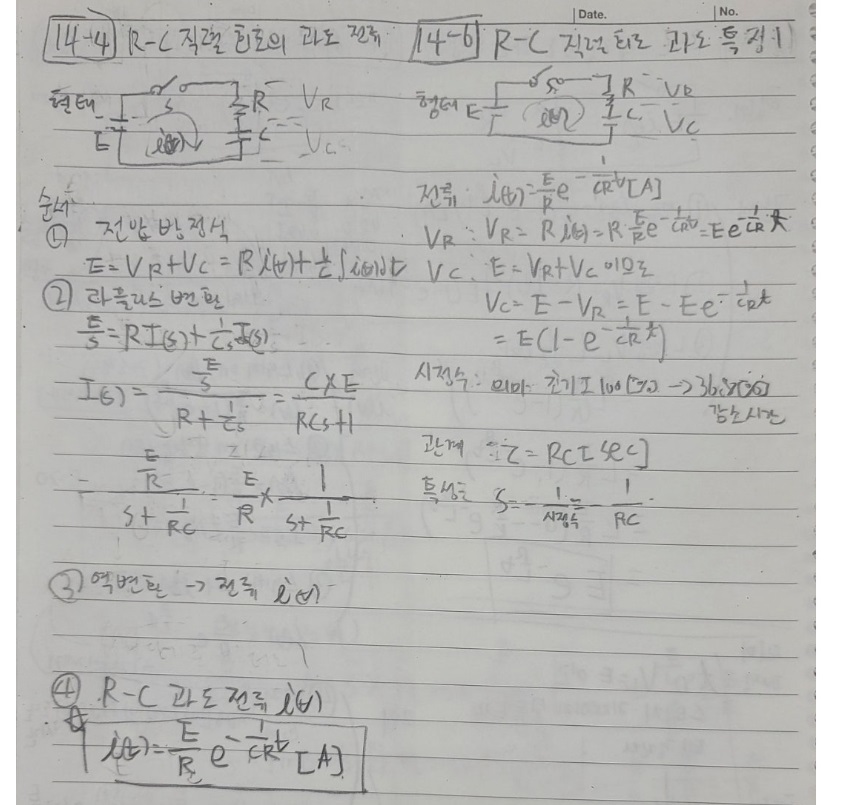 Date. No.
14-4 R-C 직렬 회로의 과도 전류
형태 E S R V_R
i(t) C V_C
순서
① 전압 방정식
E = V_R + V_C = R i(t) + 1/C ∫ i(t) dt
② 라플라스 변환
E/s = R I(s) + 1/Cs I(s)
I(s) = (E/s)/(R + 1/Cs) = (C × E)/(RCs + 1)
= (E/R)/(s + 1/RC) = E/R × 1/(s + 1/RC)
③ 역변환 → 전류 i(t)
④ R-C 과도 전류 i(t)
☆ i(t) = E/R e^(-1/CR t) [A]
14-6 R-C 직렬 회로 과도 특성1
형태 E S R V_R
i(t) C V_C
전류 i(t) = E/R e^(-1/CR t) [A]
V_R : V_R = R i(t) = R E/R e^(-1/CR t) = E e^(-1/CR t)
V_C : E = V_R + V_C 이므로
V_C = E - V_R = E - E e^(-1/CR t)
= E(1 - e^(-1/CR t))
시정수 : 의미 초기 I 100[%] → 36.8[%]
감소시간
관계 : τ = RC [sec]
특성근 S = - 1/시정수 = - 1/RC